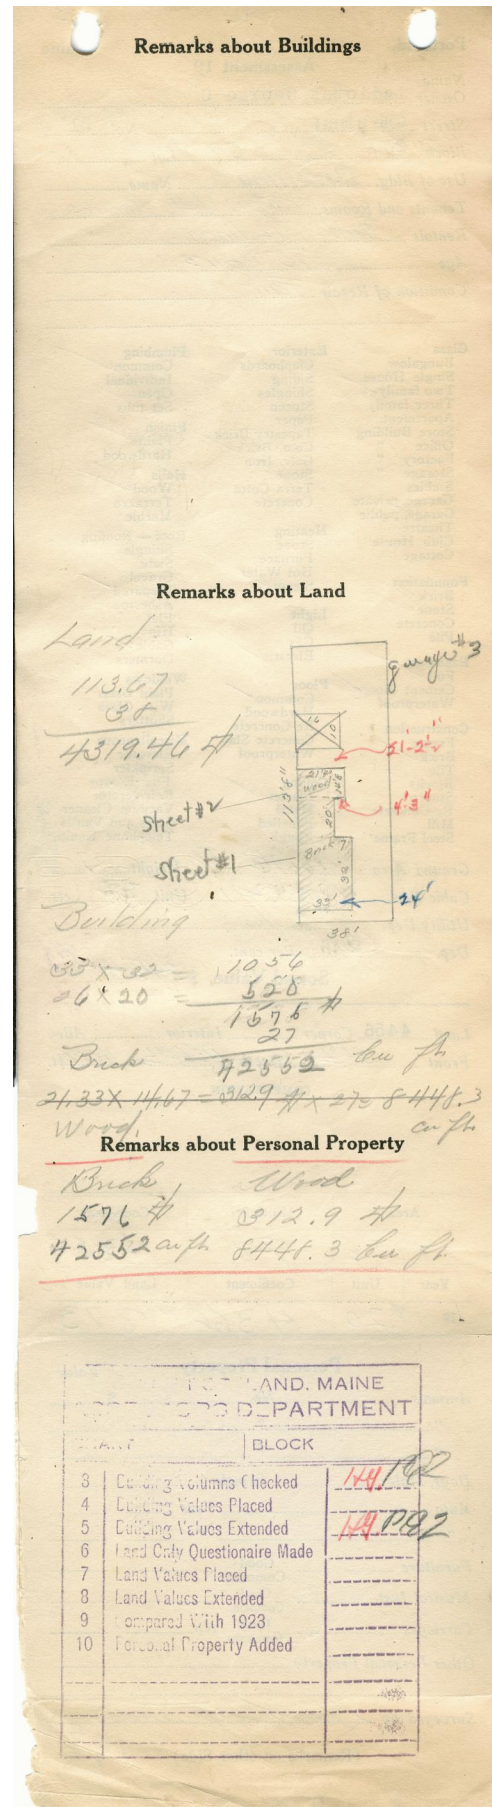 Remarks about Buildings
Remarks about Land
Land
113.67
38
4319.46 #
garage #3
16
10
51'-2½"
21'4"
Wood
113'8"
Sheet #2
4'-3"
20
Sheet #1
Brick
38
33'
24'
38'
Building
33 X 32 = 1056
26 X 20 = 520
1576 #
27
Brick 42552 Cu ft
21.33 X 14.67 = 312.9 # X 27 = 8448.3
Wood. cu ft
Remarks about Personal Property
Brick Wood
1576 # 312.9 #
42552 cu ft 8448.3 Cu ft
PORTLAND. MAINE
ASSESSORS DEPARTMENT
CHART BLOCK
3 Building Columns Checked H.G. P92
4 Building Values Placed
5 Building Values Extended H.G. P92
6 Land Only Questionaire Made
7 Land Values Placed
8 Land Values Extended
9 Compared With 1923
10 Personal Property Added